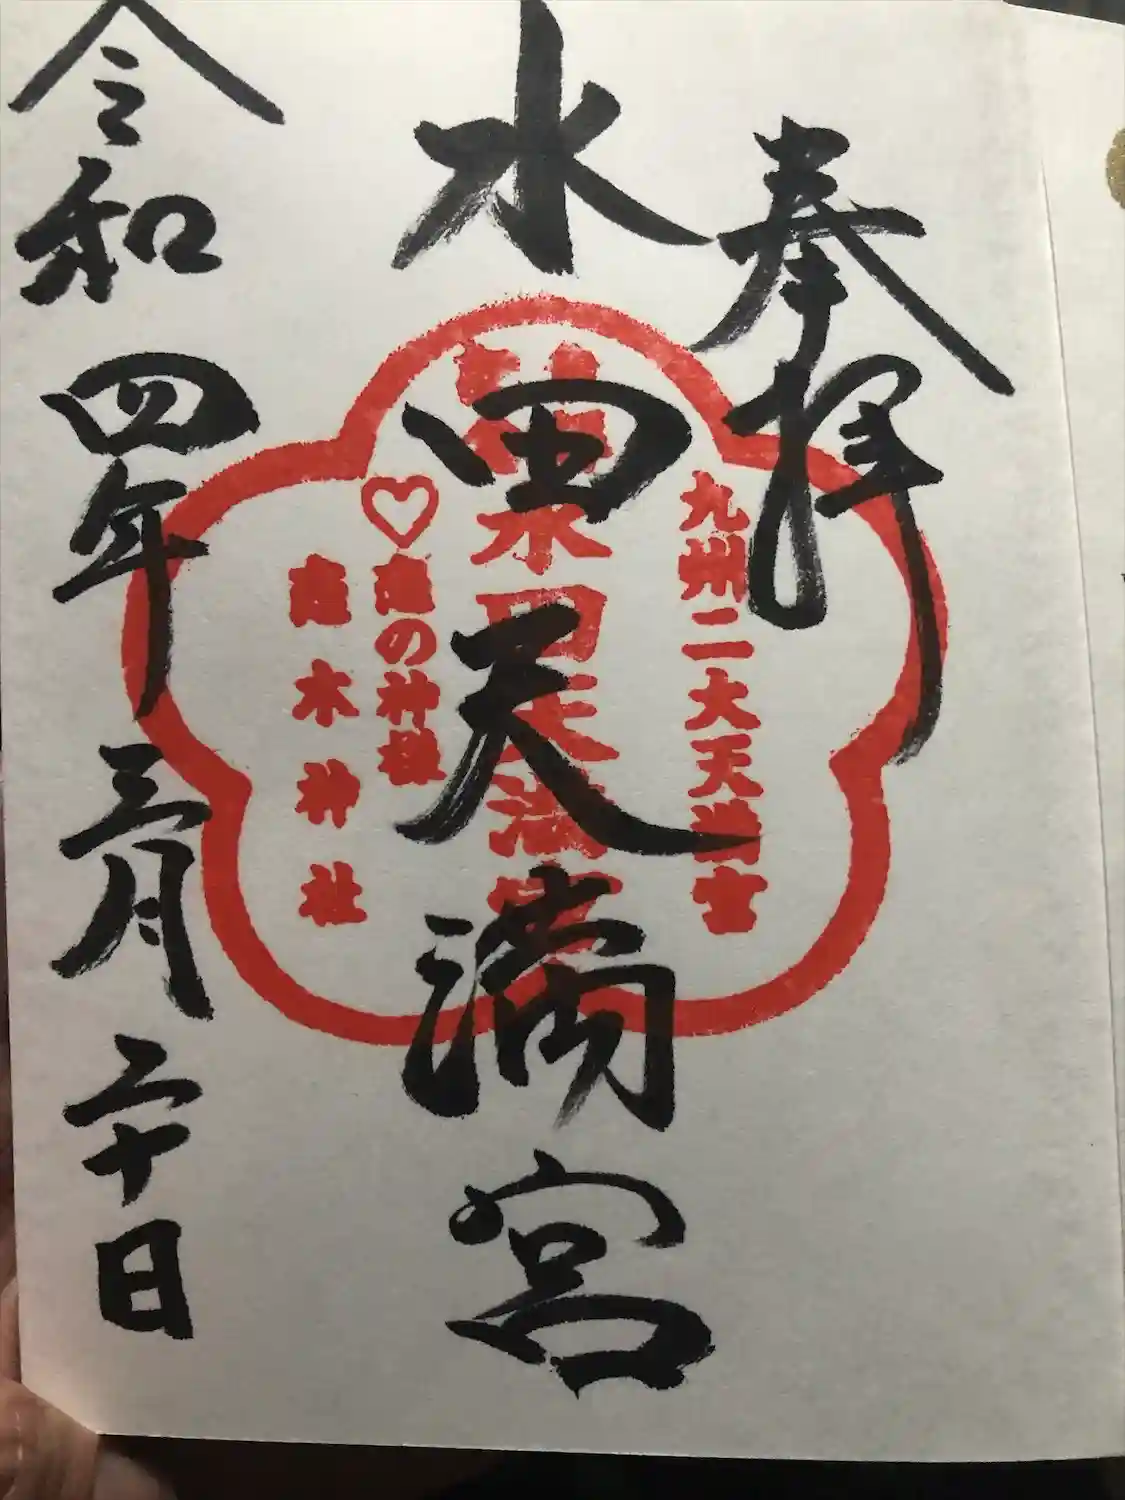 奉拝
九州二大天満宮
水田天満宮
水田天満宮
♡恋の神社
恋木神社
令和四年三月二十日